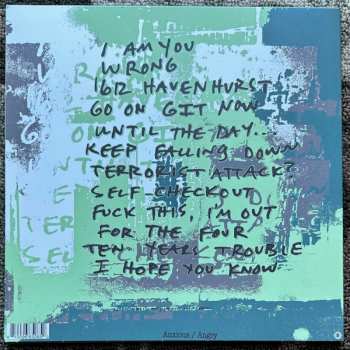 I AM YOU
WRONG
1612 HAVENHURST
GO ON GIT NOW
UNTIL THE DAY...
KEEP FALLING DOWN
TERRORIST ATTACK?
SELF-CHECKOUT
FUCK THIS, I'M OUT
FOR THE FOUR
TEN YEARS TROUBLE
I HOPE YOU KNOW
Anxious / Angry